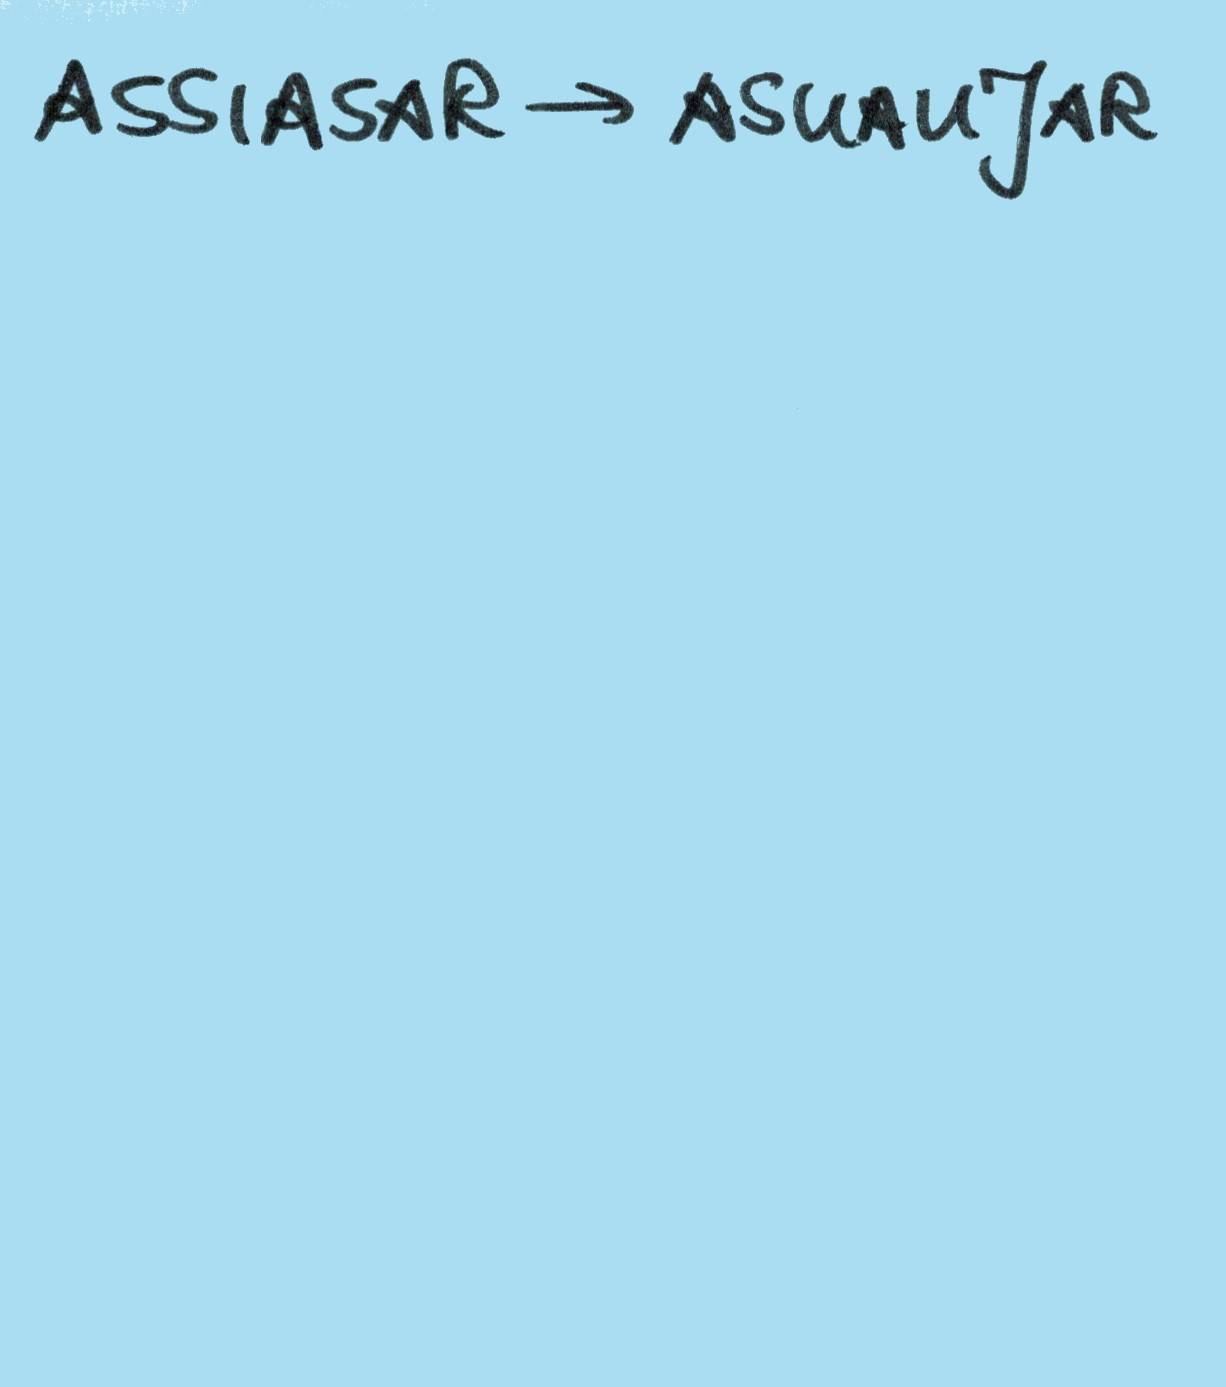 ASSIASAR → ASUAUJAR